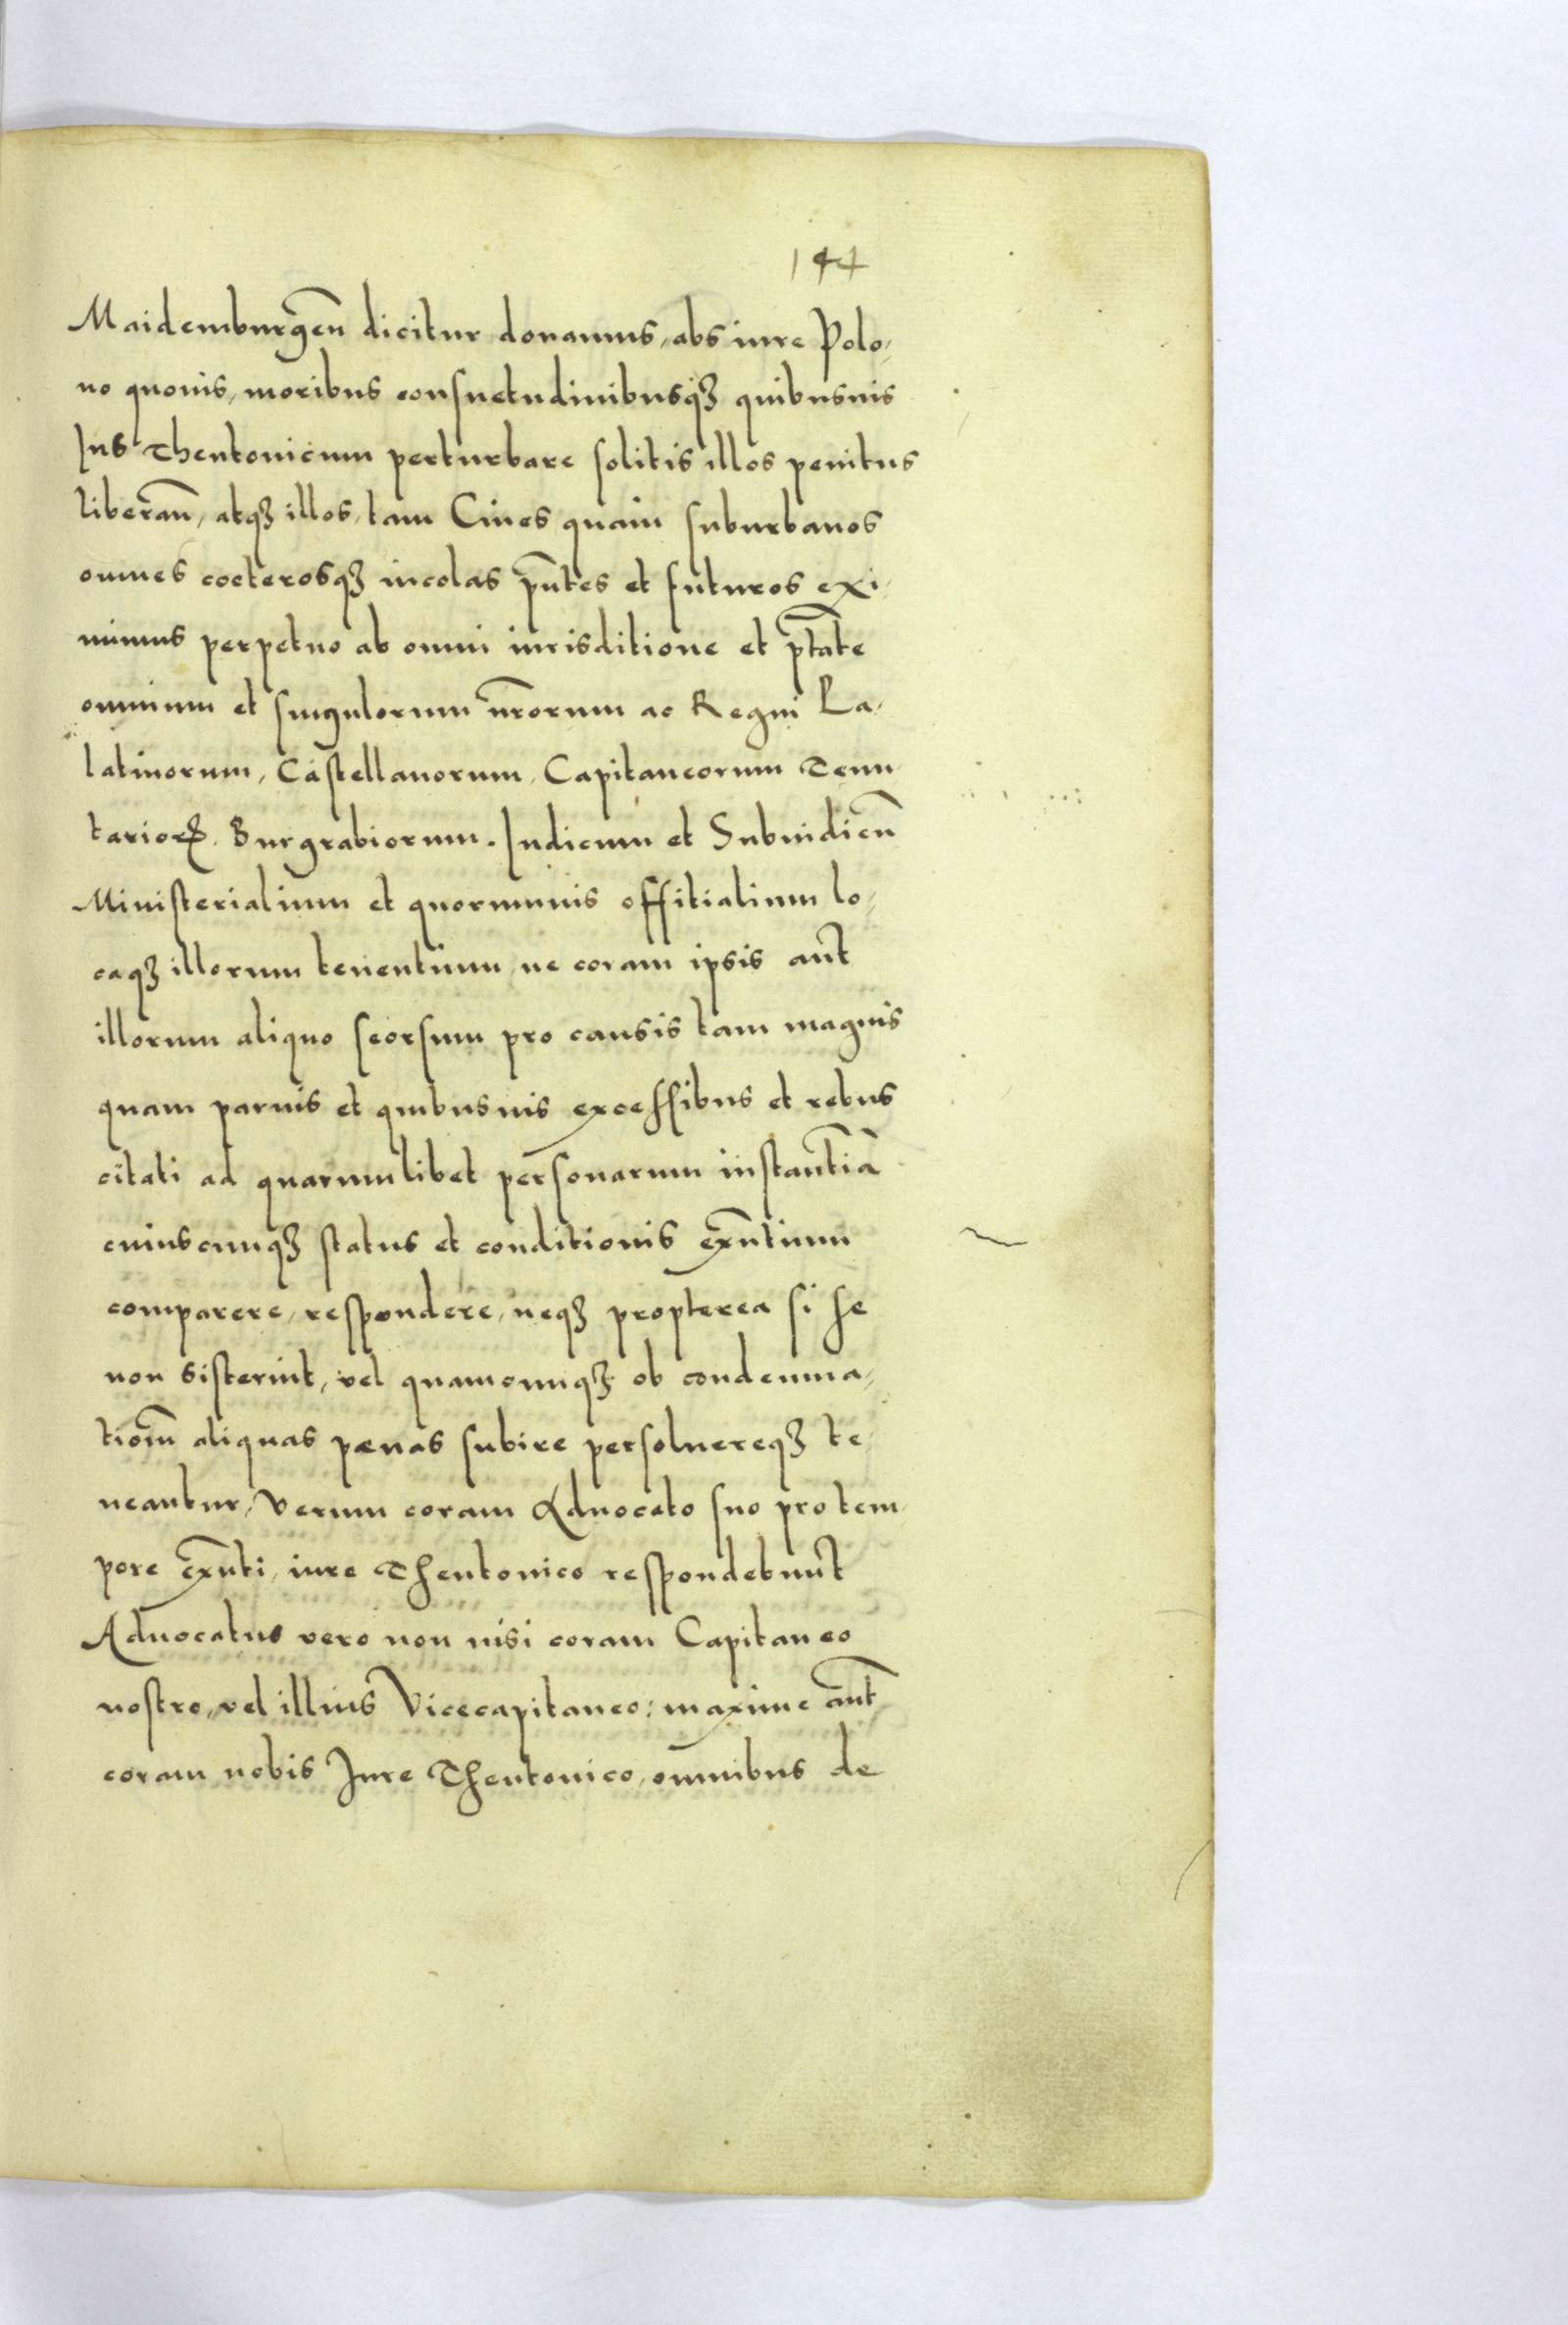 144
Maidemburgeñ dicitur donamus, abs iure Polo,
no quouis, moribus consuetudinibusqꝫ quibusuis
Ius Theutonicum perturbare solitis illos penitus
liberam̄, atqꝫ illos, tam Ciues quam suburbanos
omnes coeterosqꝫ incolas pn̄tes et futuros exi,
mimus perpetuo ab omni iurisditione et ptāte
omnium et singulorum nr̄orum ac Regni La,
latinorum, Castellanorum, Capitaneorum Tenu
tarioꝝ. Burgrabiorum. Iudicum et Subiudicū
Ministerialium et quorumuis offitialium lo,
caqꝫ illorum tenentium, ne coram ipsis aut̄
illorum aliquo seorsum pro causis tam magnis
quam paruis et quibusuis excessibus et rebus
citati ad quarumlibet personarum instantiā
cuiuscunqꝫ status et conditionis exn̄tium
comparere, respondere, neqꝫ propterea si se
non sisterint, vel quamcunqꝫ ob condemna,
tiom̄ aliquas pænas subire persoluereqꝫ te,
neantur, Verum coram Aduocato suo pro tem,
pore exn̄ti, iure Theutonico respondebunt
Aduocatus vero non nisi coram Capitaneo
nostro, vel illius Vicecapitaneo: maxime aut̄
coram nobis Iure Theutonico, omnibus de